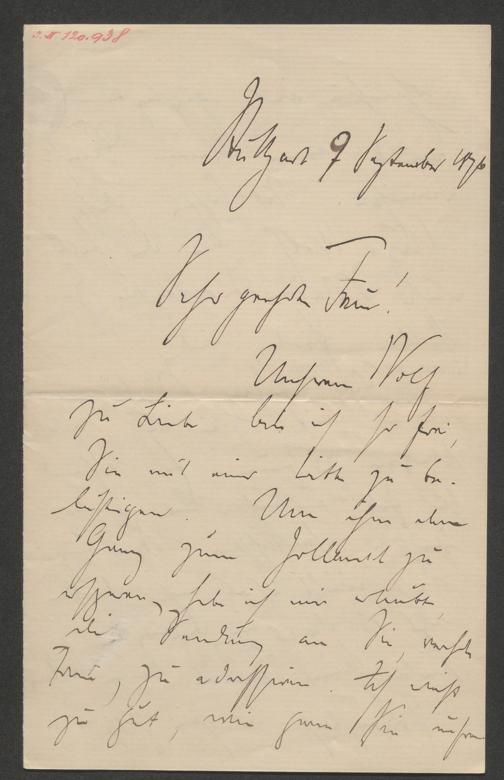 I.N. 120.938
Stuttgart 9 September 1896
Sehr geehrte Frau!
Unserem Wolf
zu Liebe bin ich so frei,
Sie mit einer Bitte zu be-
lästigen. Um ihm einen
Gang zum Zollamt zu
ersparen, habe ich mir erlaubt,
die Sendung an Sie, verehrte
Frau, zu adressieren. Ich weiß
zu gut, wie gern Sie unserm